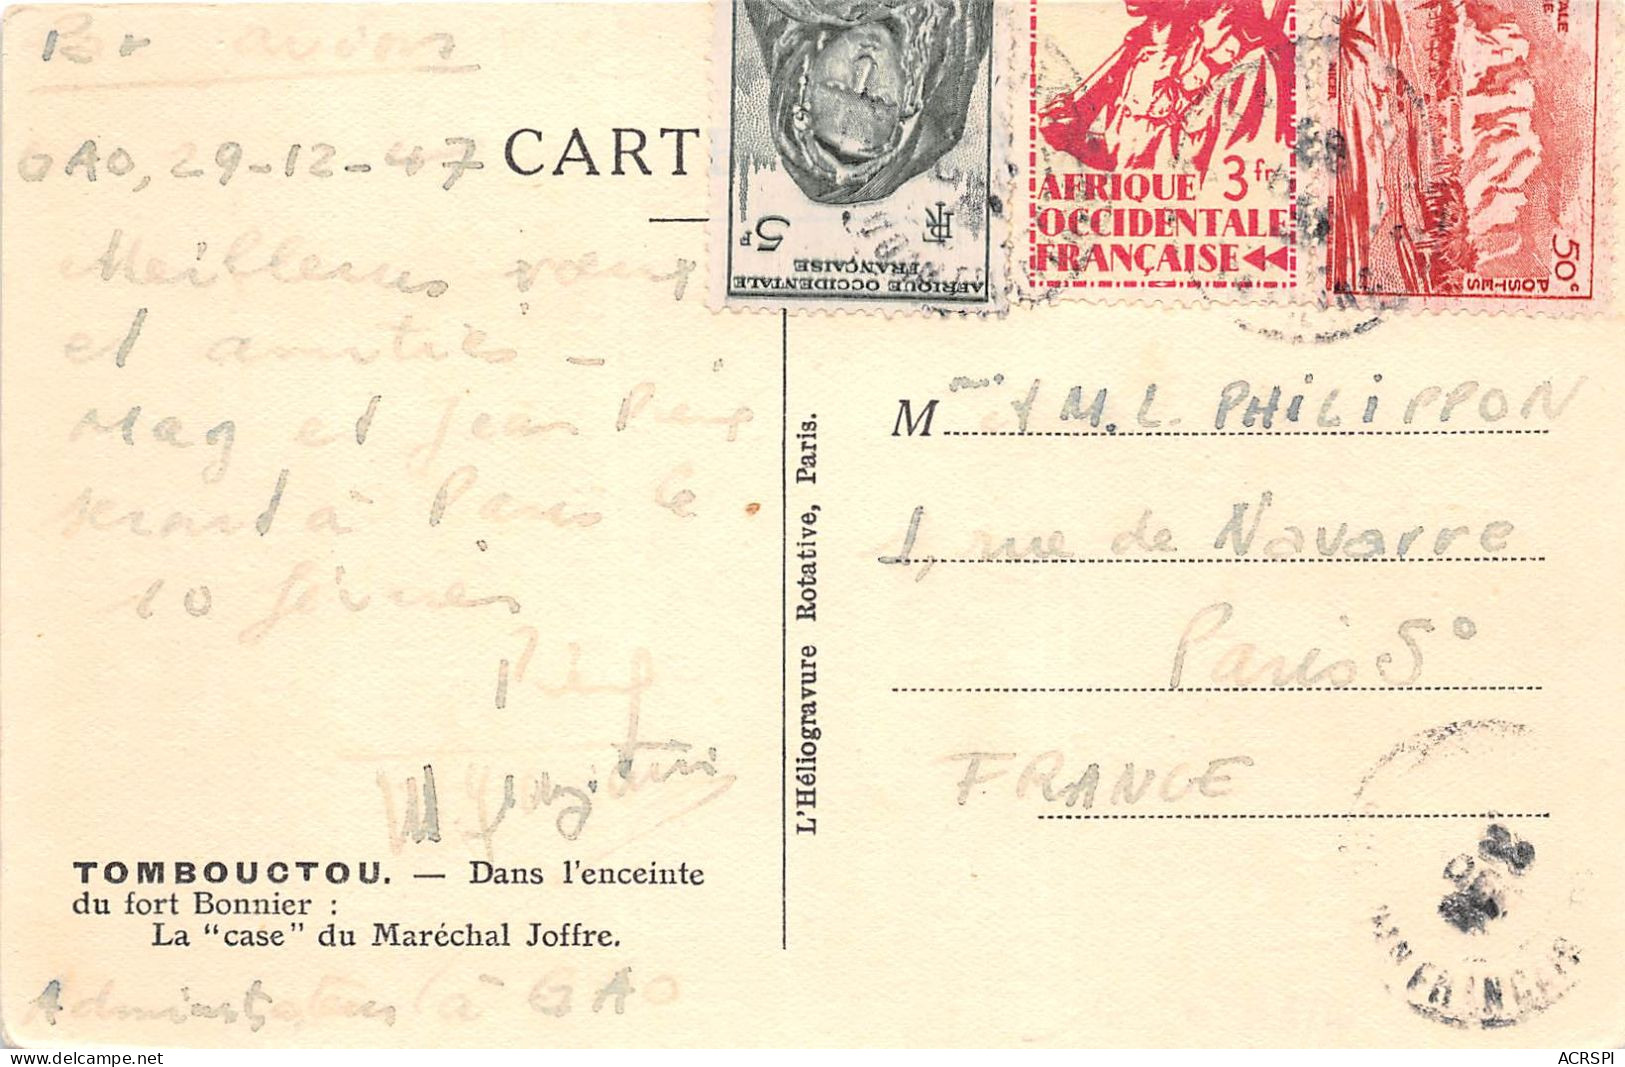 Par avion
GAO, 29-12-47
CARTE
Meilleurs vœux
et amitiés -
Mag et Jean Pierre
seront à Paris le
10 février
TOMBOUCTOU. — Dans l'enceinte
du fort Bonnier :
La "case" du Maréchal Joffre.
Administrateur à GAO
L'Héliogravure Rotative, Paris.
5F
RF
AFRIQUE OCCIDENTALE
FRANÇAISE
3fr
AFRIQUE
OCCIDENTALE
FRANÇAISE
NIGER
50c
POSTES
M et M.L. PHILIPPON
1, rue de Navarre
Paris 5°
FRANCE
ACRSPI
delcampe.net